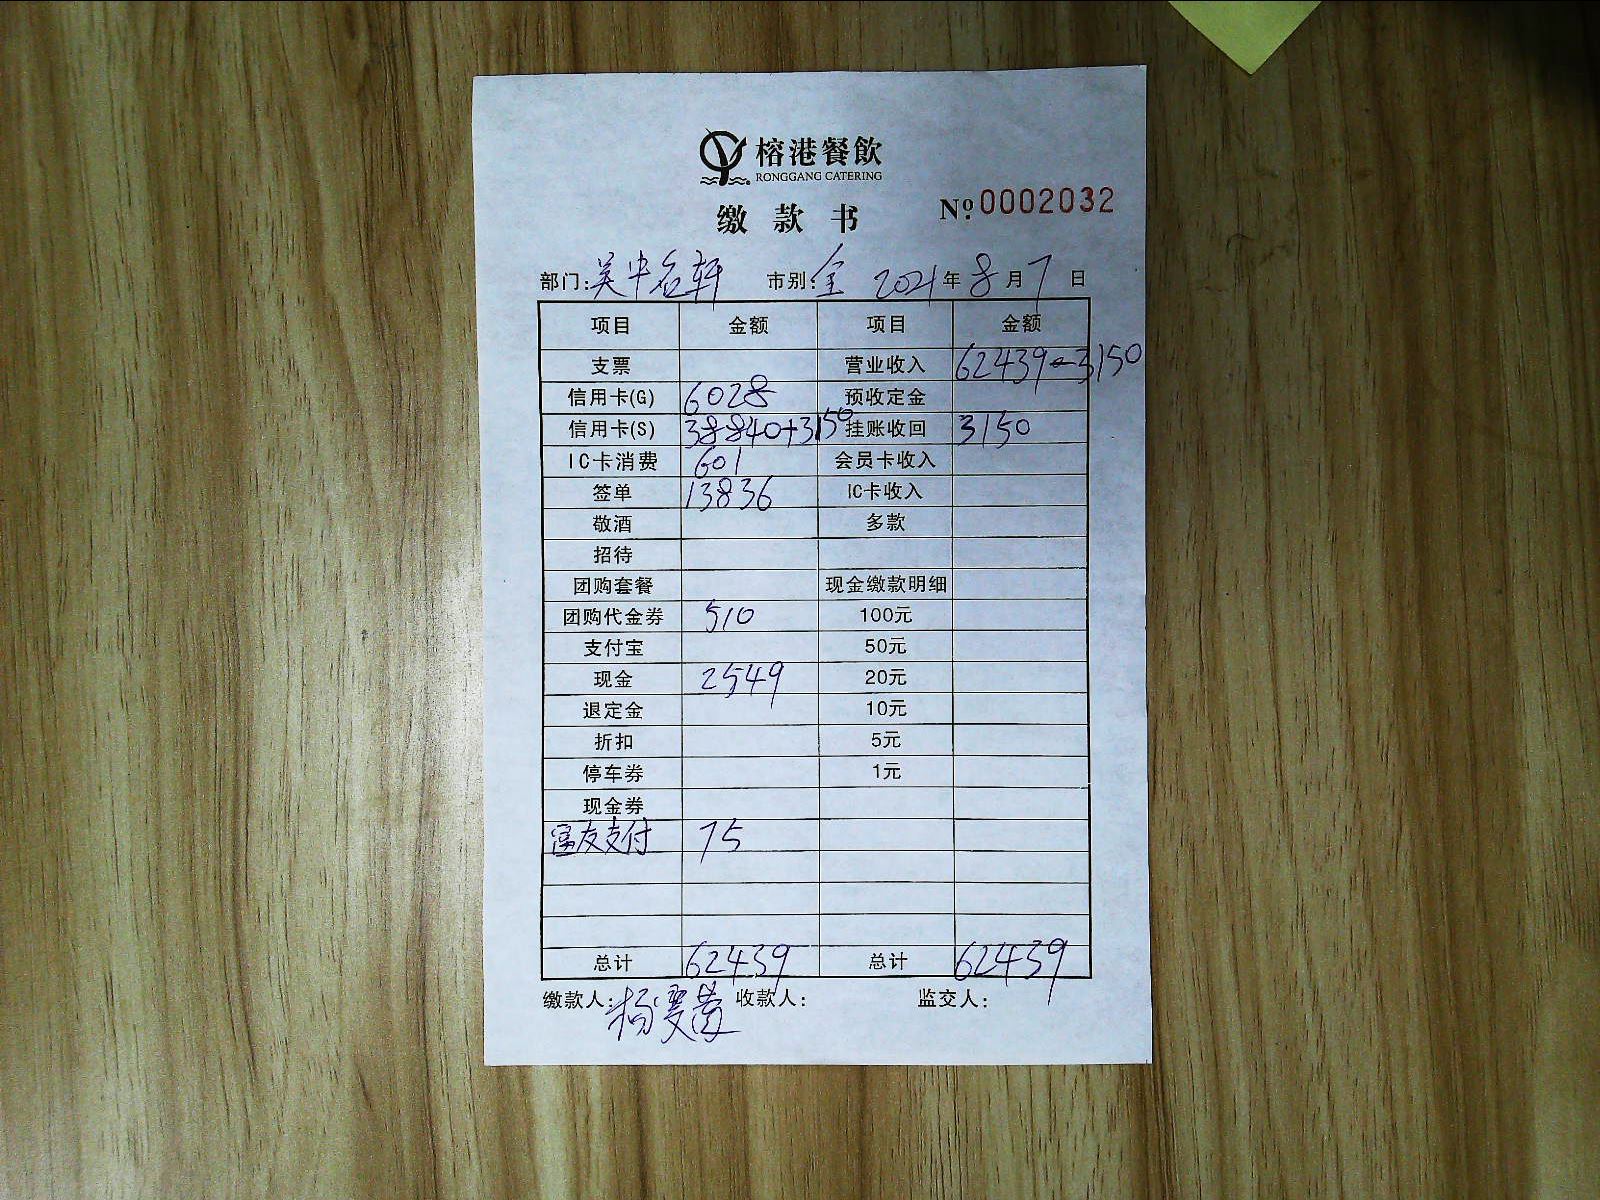 榕港餐飲
RONGGANG CATERING
缴款书 Nº:0002032
部门:吴中名轩 市别:全 2021年8月7日
项目 金额 项目 金额
支票 营业收入 62439-3150
信用卡(G) 6028 预收定金
信用卡(S) 38840+3150 挂账收回 3150
IC卡消费 601 会员卡收入
签单 13836 IC卡收入
敬酒 多款
招待
团购套餐 现金缴款明细
团购代金券 510 100元
支付宝 50元
现金 2549 20元
退定金 10元
折扣 5元
停车券 1元
现金券
富友支付 75
总计 62439 总计 62439
缴款人:杨雯 收款人: 监交人: